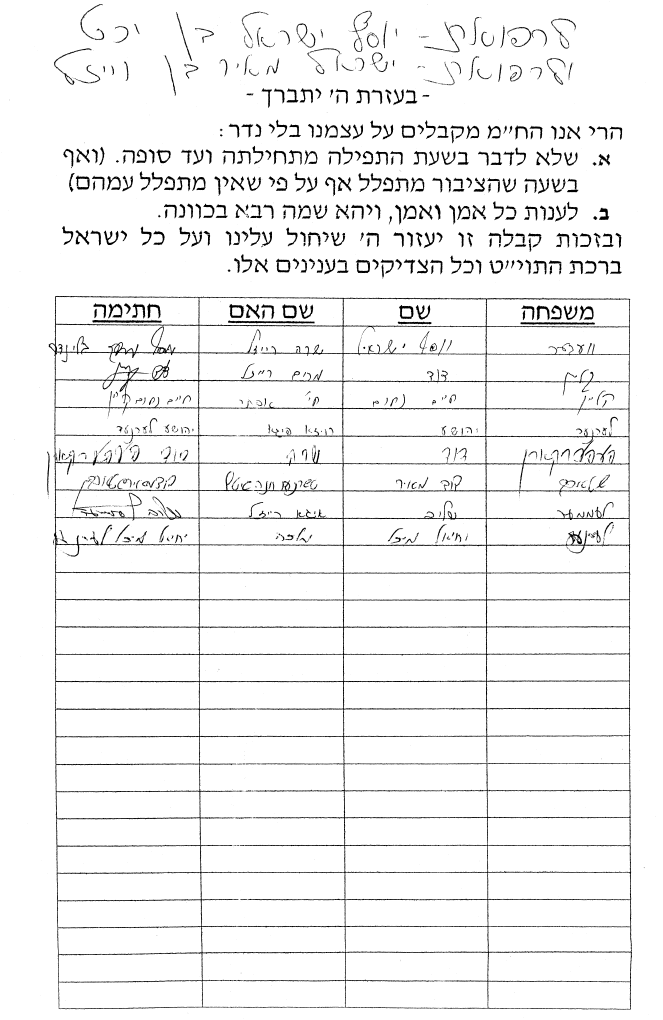 לרפואת - יוסף ישראל בן יכט
ולרפואת - ישראל מאיר בן רייזל
- בעזרת ה' יתברך -
הרי אנו הח״מ מקבלים על עצמנו בלי נדר:
א. שלא לדבר בשעת התפילה מתחילתה ועד סופה. (ואף
בשעה שהציבור מתפלל אף על פי שאין מתפלל עמהם)
ב. לענות כל אמן ואמן, ויהא שמה רבא בכוונה.
ובזכות קבלה זו יעזור ה' שיחול עלינו ועל כל ישראל
ברכת התוי״ט וכל הצדיקים בענינים אלו.
משפחה שם שם האם חתימה
יוסף ישראל שרה רייזל
קליין דוד מרים רייזל
קליין חיים נחום חי' אסתר חיים נחום קליין
לערנער יהושע רויזא הינא יהושע לערנער
דוד
דוב מאיר
רייזל
יחיאל מיכל מלכה יחיאל מיכל